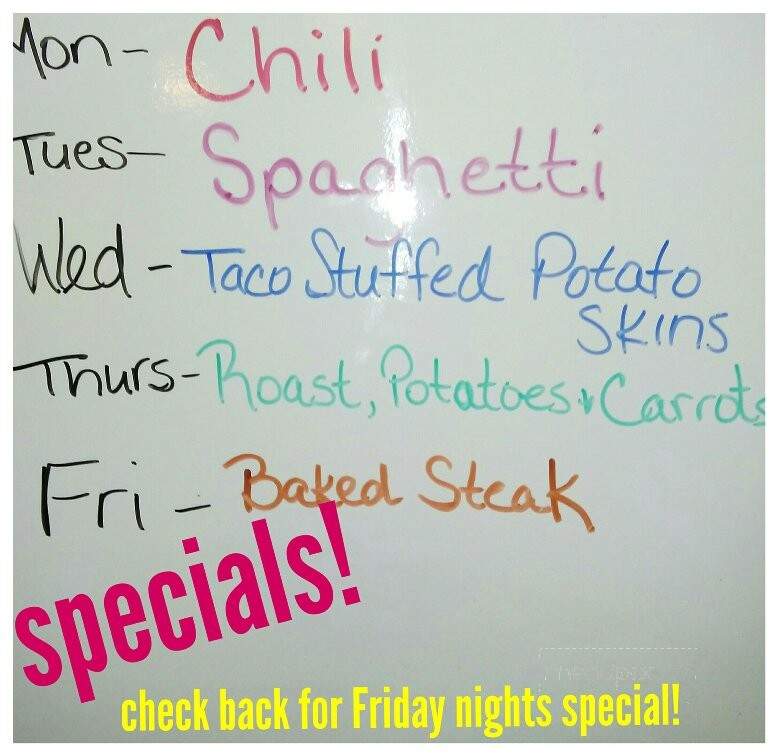 Mon- Chili
Tues- Spaghetti
Wed - Taco Stuffed Potato
Skins
Thurs- Roast, Potatoes & Carrots
Fri - Baked Steak
specials!
check back for Friday nights special!